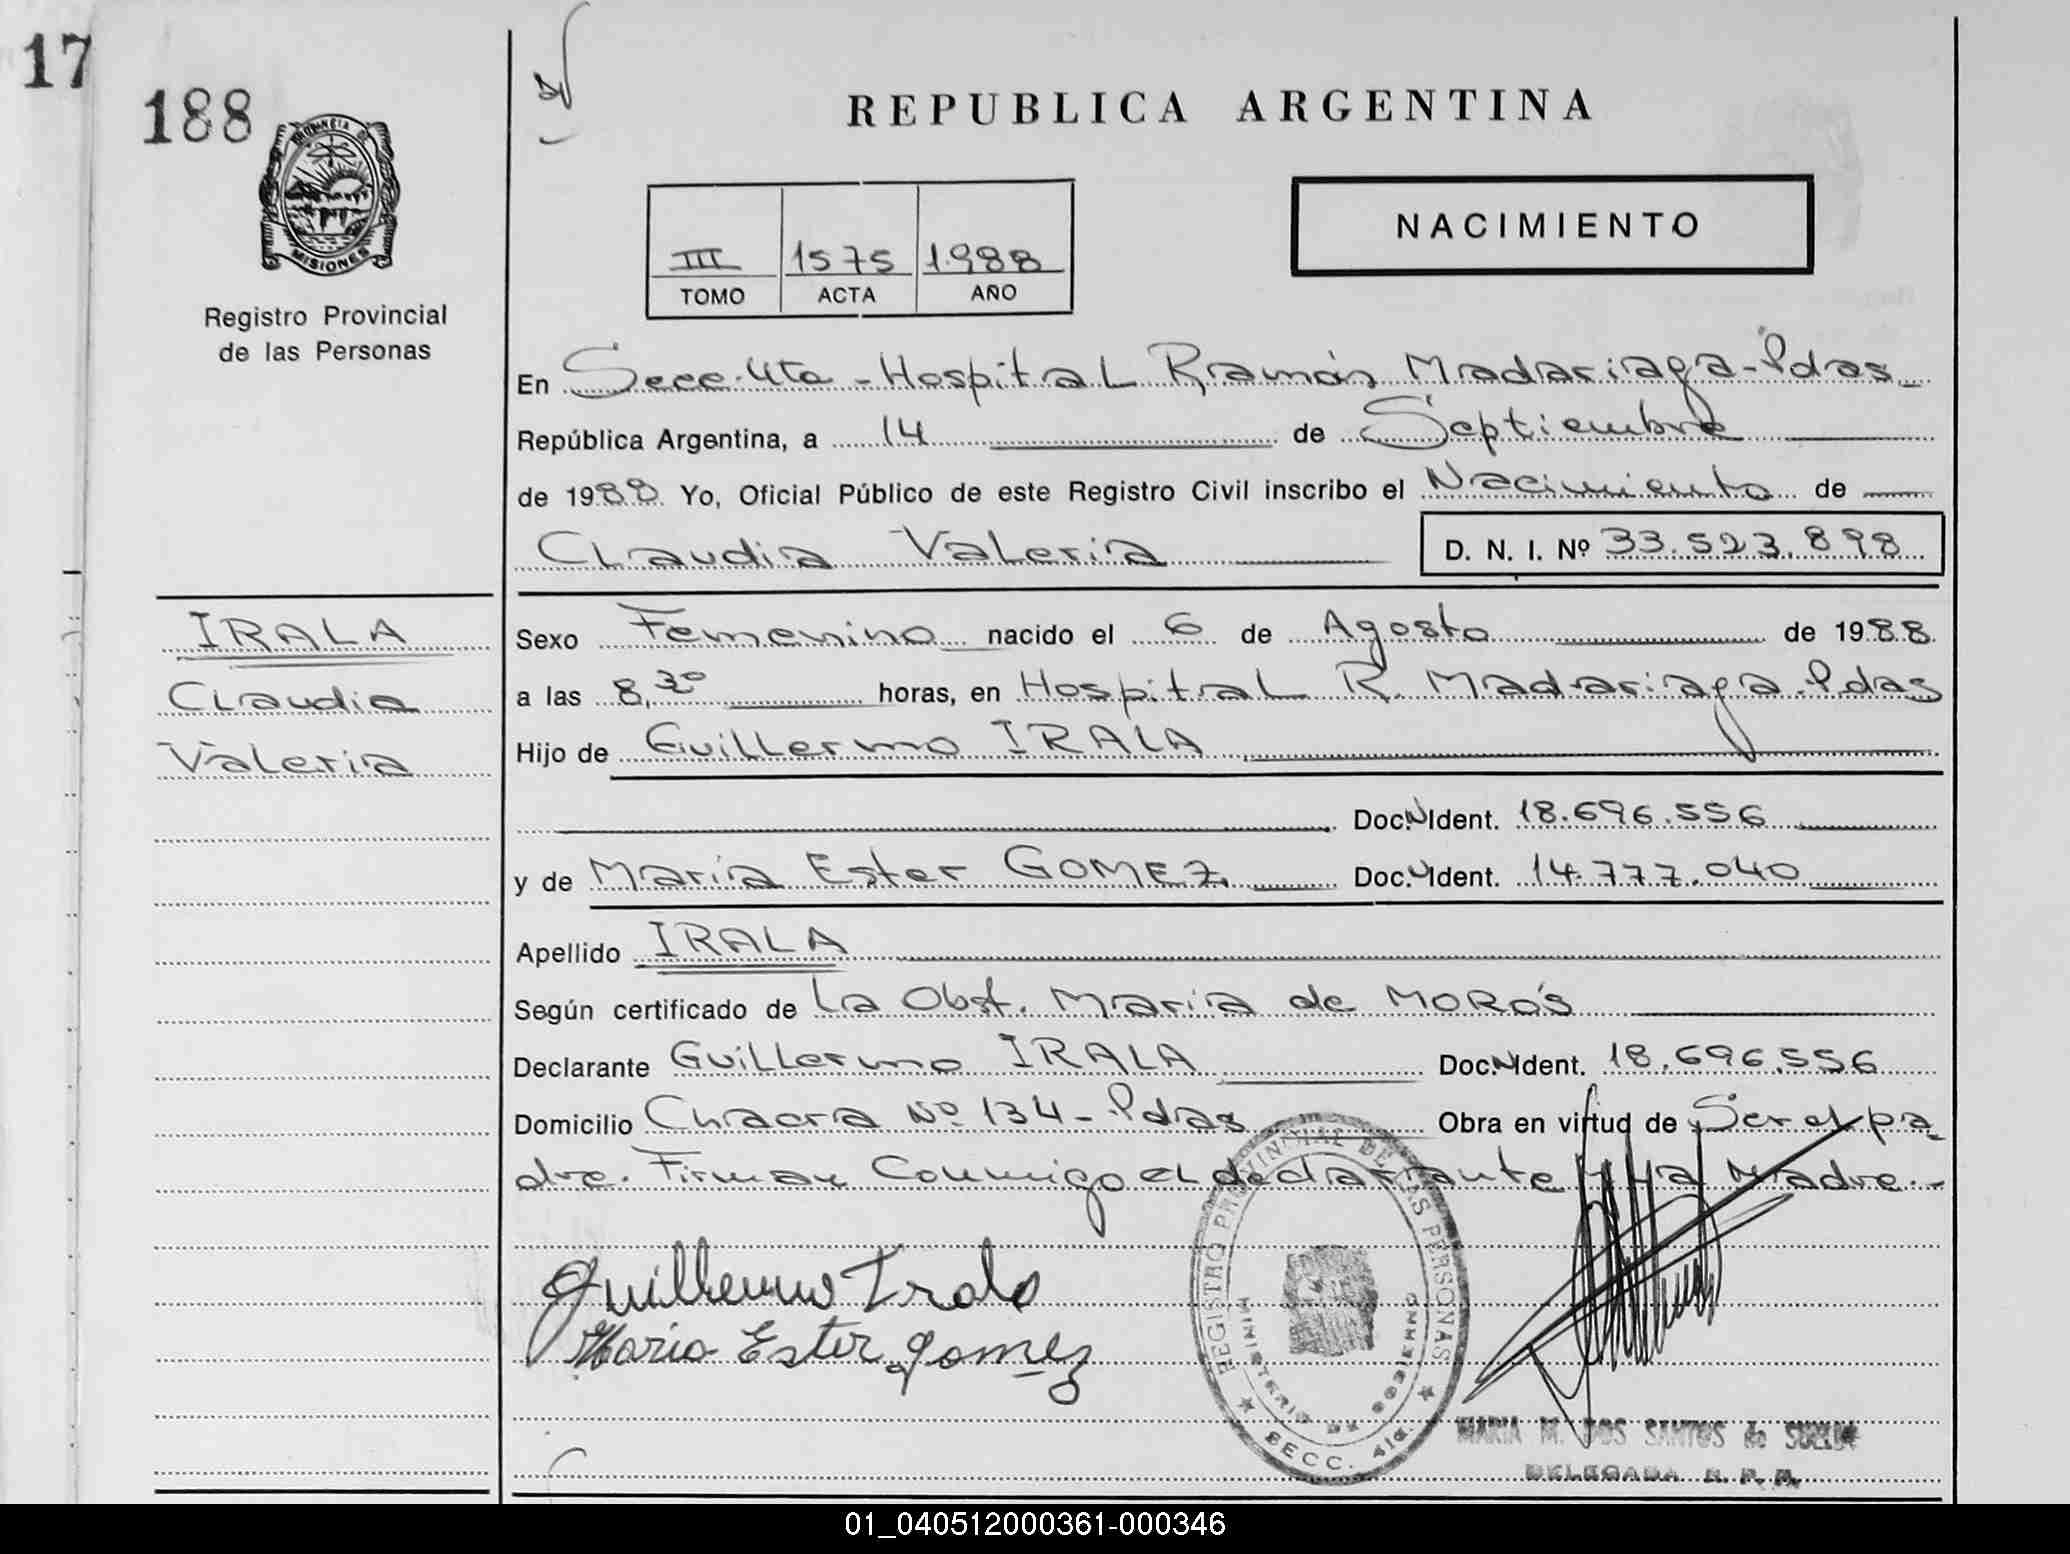 17
188
PROVINCIA DE
MISIONES
Registro Provincial
de las Personas
REPUBLICA ARGENTINA
NACIMIENTO
III 1575 1.988
TOMO ACTA AÑO
En Secc. 4ta - Hospital Ramón Madariaga - Pdas
República Argentina, a 14 de Septiembre
de 1988 Yo, Oficial Público de este Registro Civil inscribo el Nacimiento de
Claudia Valeria D. N. I. Nº 33.523.898
IRALA
Claudia
Valeria
Sexo Femenino nacido el 6 de Agosto de 1988
a las 8,30 horas, en Hospital R. Madariaga - Pdas
Hijo de Guillermo IRALA
Doc.N Ident. 18.696.556
y de María Ester GOMEZ Doc.N Ident. 14.777.040
Apellido IRALA
Según certificado de La Obst. María de MOROS
Declarante Guillermo IRALA Doc.N Ident. 18.696.556
Domicilio Chacra Nº 134 - Pdas Obra en virtud de Ser el pa
dre. Firman Conmigo el declarante y la Madre.-
Guillermo Irala
Maria Ester Gomez
REGISTRO PROVINCIAL DE LAS PERSONAS
MINISTERIO DE GOBIERNO
SECC. 4ta.
MARIA M. DOS SANTOS de
DELEGADA R. P. P.
01_040512000361-000346